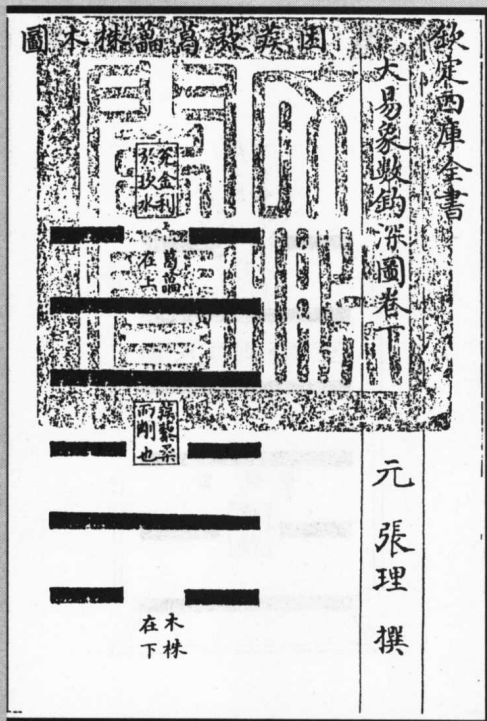 欽定四庫全書
大易象數鈎深圖卷下
元 張理 撰
困蒺藜葛藟株木圖
兌金利
於坎水
葛藟
在上
蒺藜柔
而剛也
木株
在下